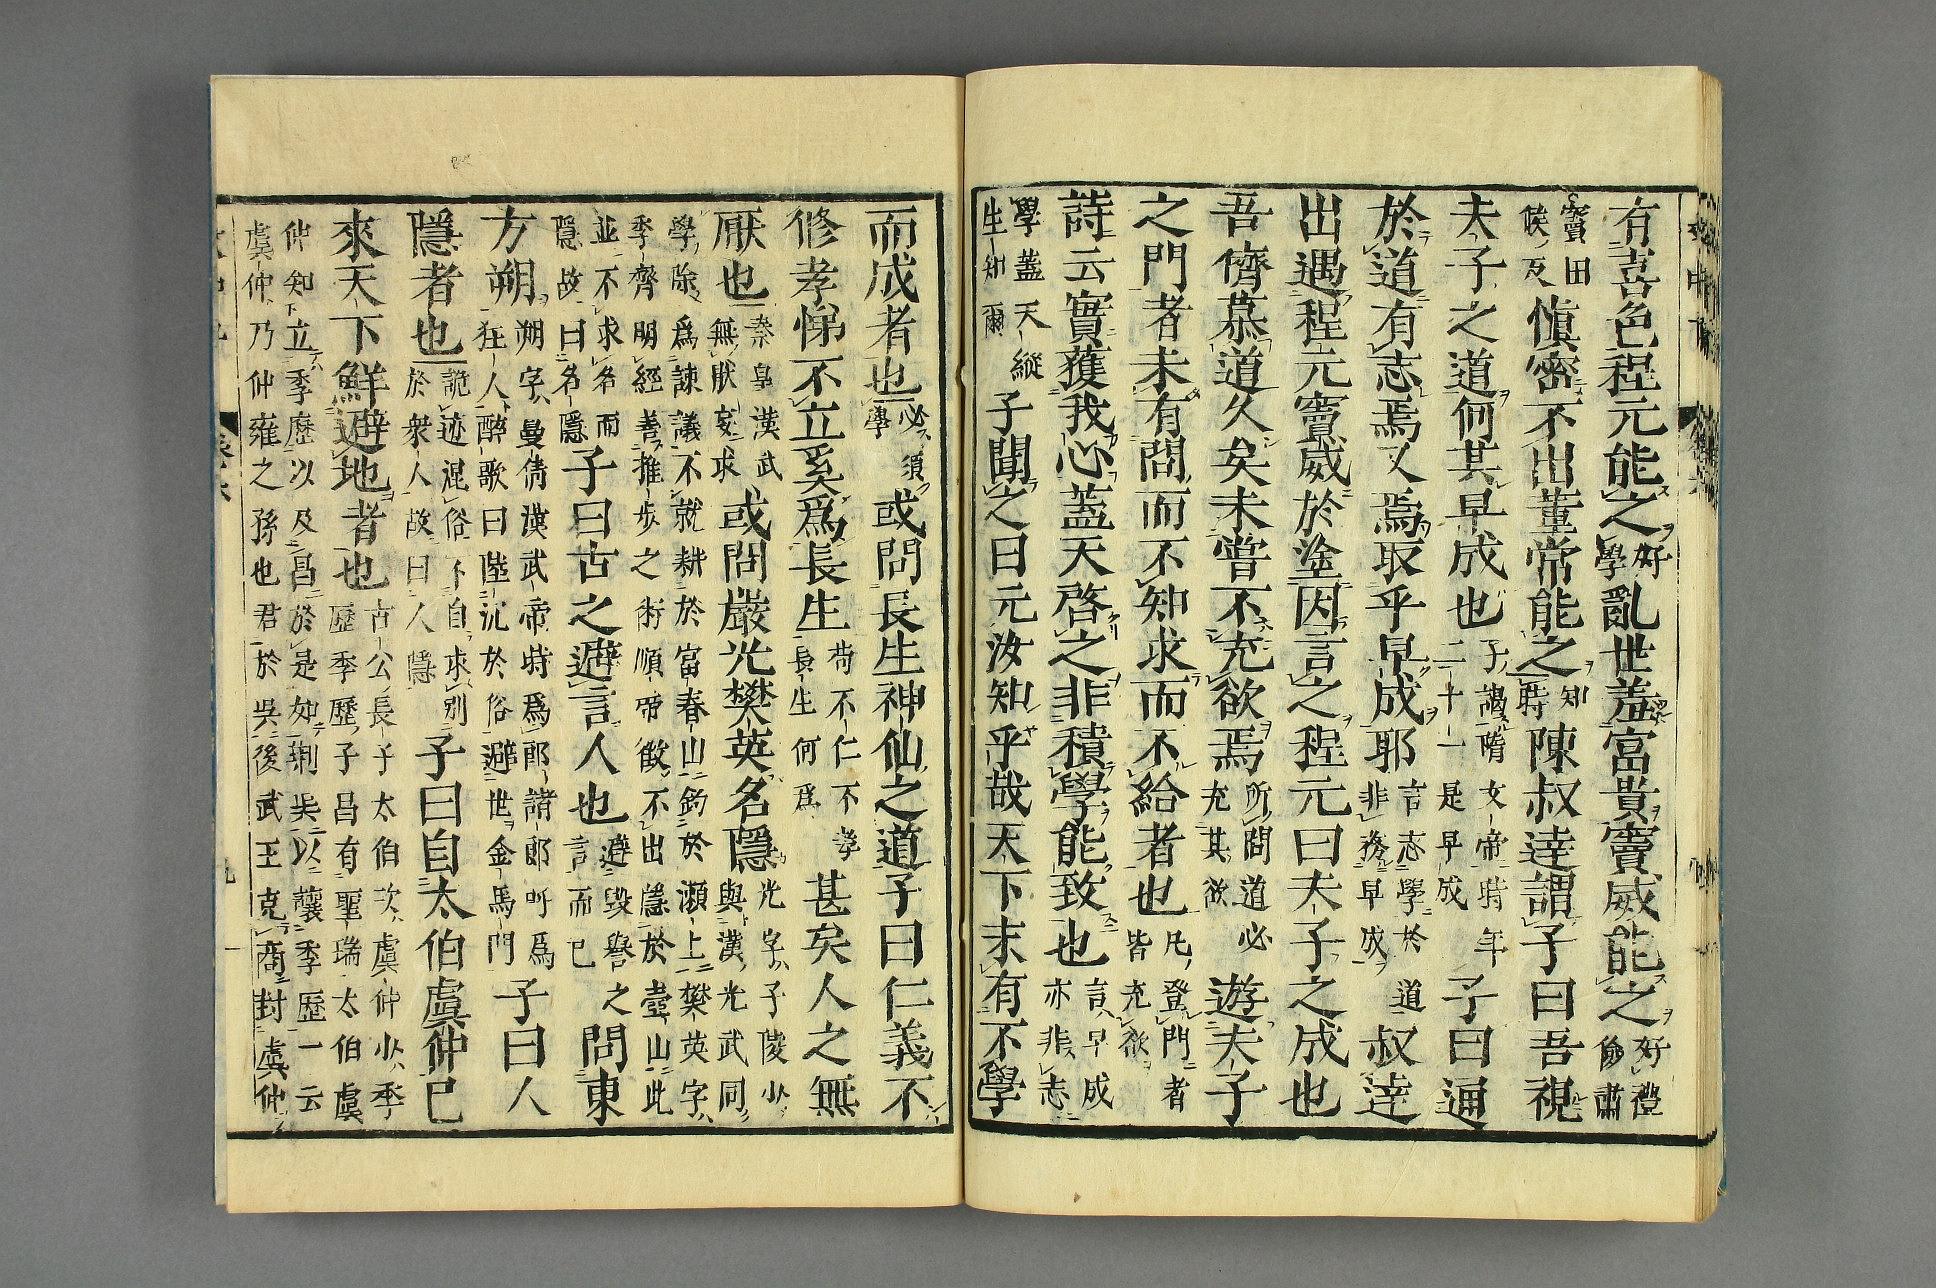 有喜色程元能之好學亂世羞富貴竇威能之好禮儉肅
竇田候反愼密不出董常能之知時陳叔達謂子曰吾視
夫子之道何其早成也子謁隋女帝時年二十一是早成子曰通
於道有志焉又焉取乎早成耶言志學於道非務早成叔達
出遇程元竇威於塗因言之程元曰夫子之成也
吾儕慕道久矣未嘗不充欲焉所問道必充其欲遊夫子
之門者未有問而不知求而不給者也凡登門者皆充欲
詩云實獲我心蓋天啓之非積學能致也言早成亦非志
學蓋天縱生知爾子聞之曰元汝知乎哉天下未有不學
而成者也必須學或問長生神仙之道子曰仁義不
修孝悌不立奚爲長生苟不仁不孝長生何爲甚矣人之無
厭也秦皇漢武無厭妄求或問嚴光樊英名隱光字子陵少與漢光武同
學除爲諫議不就耕於富春山釣於瀬上樊英字季齊明經善推步之術順帝徴不出隱於壺山此
並不求名而隱故曰名隱子曰古之避言人也避毀譽之言而已問東
方朔朔字曼倩漢武帝時爲郎諸郎呼爲狂人醉歌曰陸沉於俗避世金馬門子曰人
隱者也詭迹混俗不自求別於衆人故曰人隱子曰自太伯虞仲已
來天下鮮避地者也古公長子太伯次虞仲少季歷季歷子昌有聖瑞太伯虞
仲知立季歷以及昌於是如荆呉以讓季歷一云虞仲乃仲雍之孫也君於吳後武王克商封虞仲